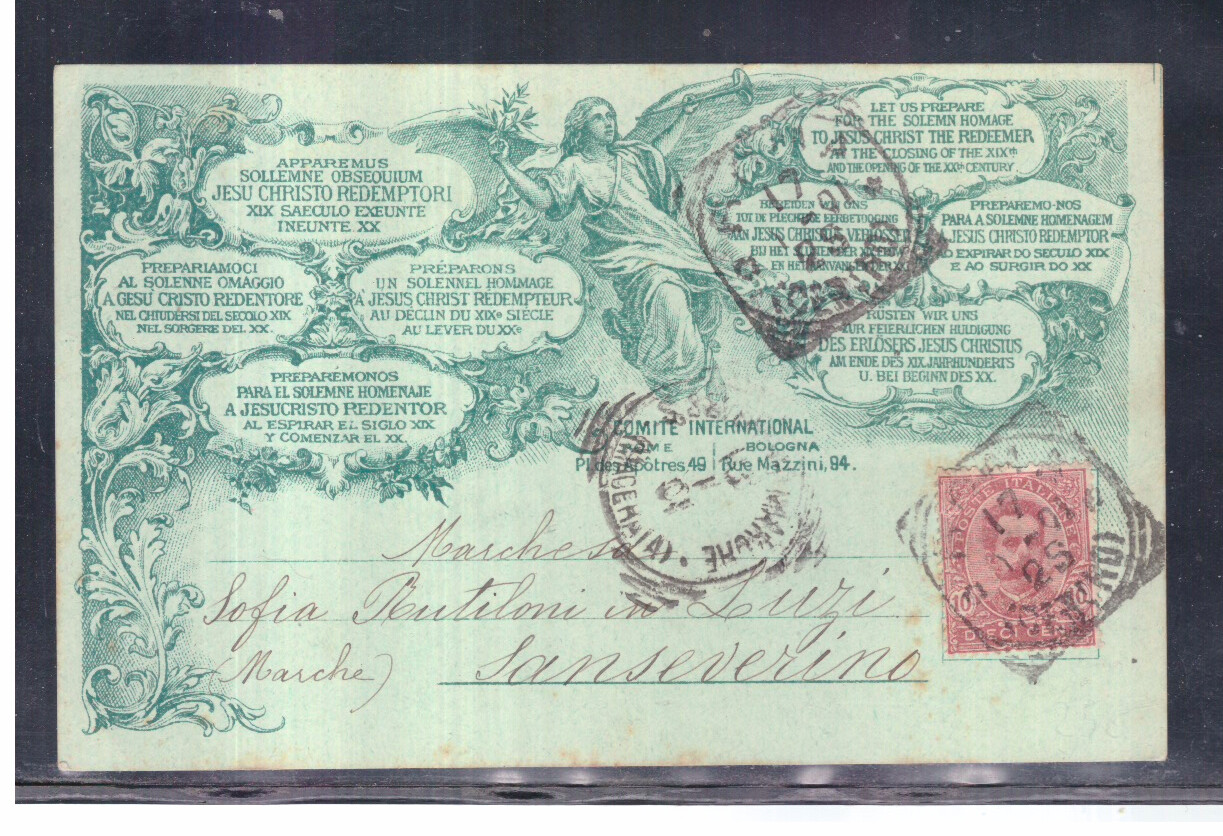 APPAREMUS
SOLLEMNE OBSEQUIUM
JESU CHRISTO REDEMPTORI
XIX SAECULO EXEUNTE
INEUNTE XX
PREPARIAMOCI
AL SOLENNE OMAGGIO
A GESÙ CRISTO REDENTORE
NEL CHIUDERSI DEL SECOLO XIX
NEL SORGERE DEL XX.
PRÉPARONS
UN SOLENNEL HOMMAGE
À JESUS CHRIST RÉDEMPTEUR
AU DÉCLIN DU XIXe SIÈCLE
AU LEVER DU XXe
PREPARÉMONOS
PARA EL SOLEMNE HOMENAJE
A JESUCRISTO REDENTOR
AL ESPIRAR EL SIGLO XIX
Y COMENZAR EL XX.
LET US PREPARE
FOR THE SOLEMN HOMAGE
TO JESUS CHRIST THE REDEEMER
AT THE CLOSING OF THE XIXth
AND THE OPENING OF THE XXth CENTURY
BEREIDEN WIJ ONS
TOT DE PLECHTIGE EERBETOOGING
AAN JESUS CHRISTUS VERLOSSER
BIJ HET
EN HET AANVANG DER XX
PREPAREMO-NOS
PARA A SOLEMNE HOMENAGEM
A JESUS CHRISTO REDEMPTOR
AO EXPIRAR DO SECULO XIX
E AO SURGIR DO XX
RÜSTEN WIR UNS
ZUR FEIERLICHEN HULDIGUNG
DES ERLÖSERS JESUS CHRISTUS
AM ENDE DES XIX. JAHRHUNDERTS
U. BEI BEGINN DES XX.
COMITÉ INTERNATIONAL
ROME | BOLOGNA
Pl. des Apôtres 49 | Rue Mazzini, 94.
Marchesa
Sofia Rutiloni in Luzi
(Marche) Sanseverino
POSTE ITALIANE
10 10
DIECI CENT
17
1
01
2 S